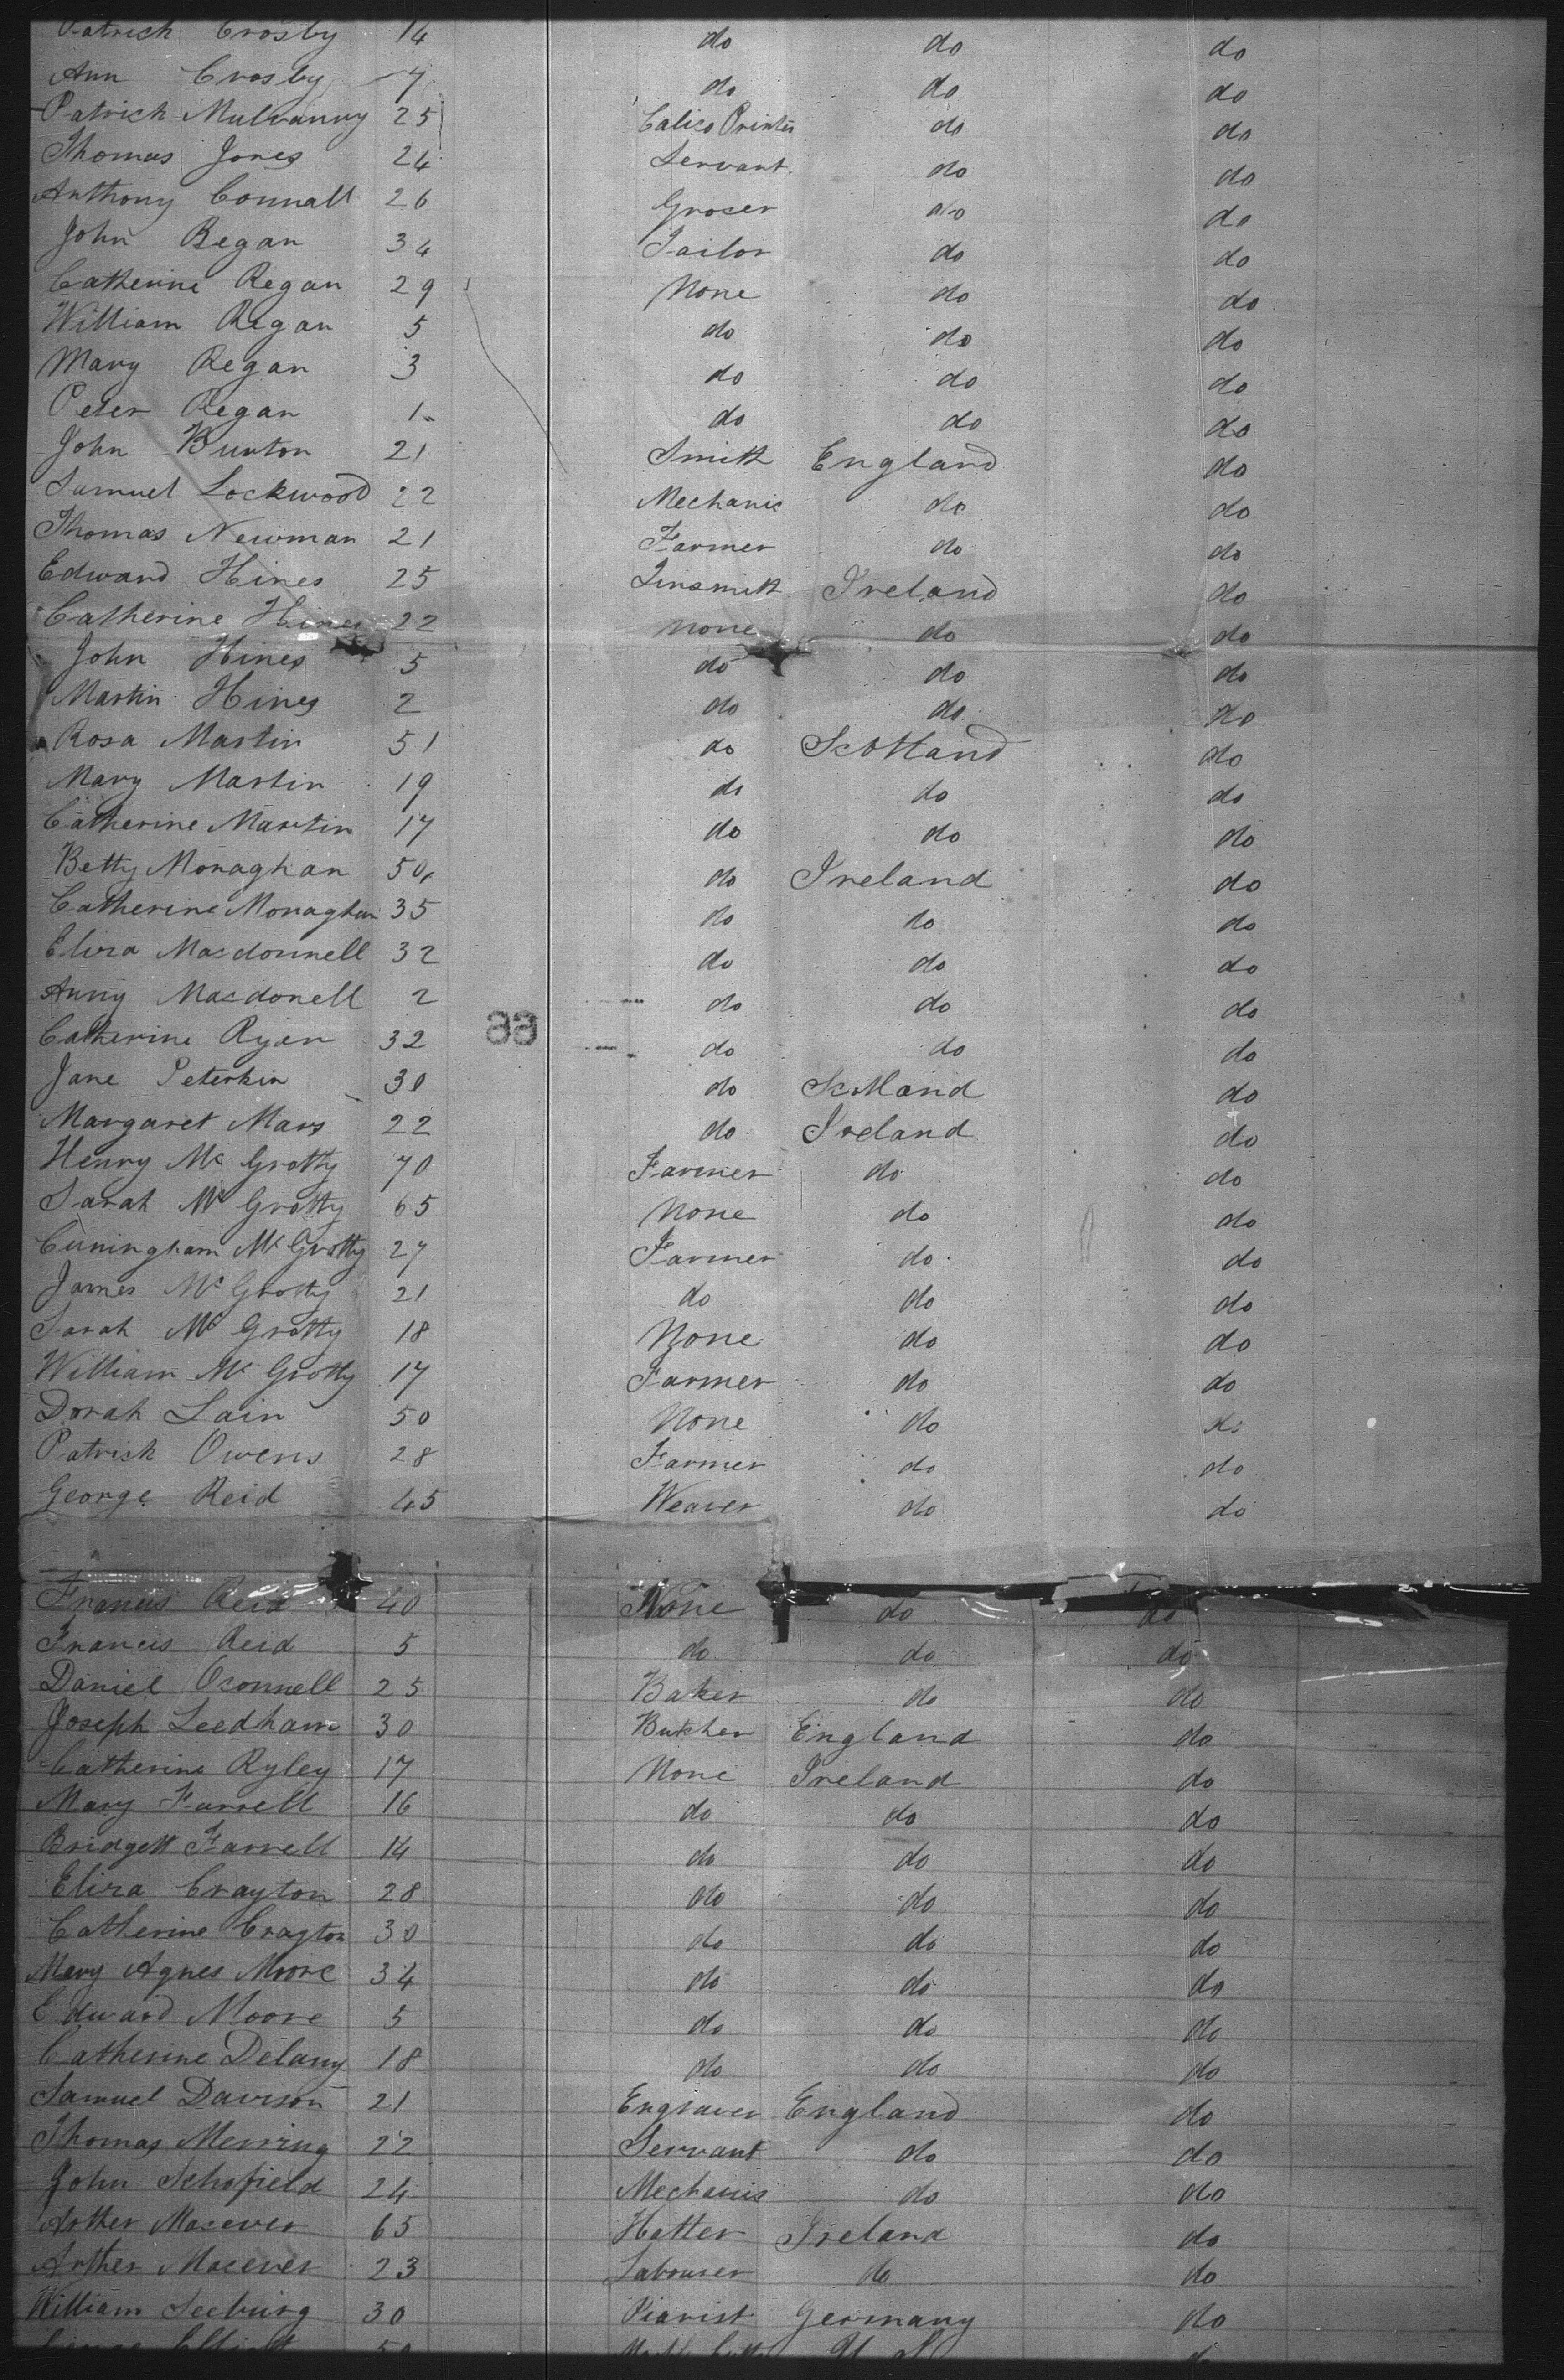 Patrick Crosby 14 do do do
Ann Crosby 7 do do do
Patrick Mulvanny 25 Calico Printer do do
Thomas Jones 24 Servant do do
Anthony Connall 26 Grocer do do
John Regan 34 Tailor do do
Catherine Regan 29 None do do
William Regan 5 do do do
Mary Regan 3 do do do
Peter Regan 1 do do do
John Burton 21 Smith England do
Samuel Lockwood 22 Mechanic do do
Thomas Newman 21 Farmer do do
Edward Hines 25 Tinsmith Ireland do
Catherine Hines 22 None do do
John Hines 5 do do do
Martin Hines 2 do do do
Rosa Martin 51 do Scotland do
Mary Martin 19 do do do
Catherine Martin 17 do do do
Betty Monaghan 50 do Ireland do
Catherine Monaghan 35 do do do
Eliza Macdonnell 32 do do do
Anny Macdonell 2 do do do
Catherine Ryan 32 do do do
Jane Peterkin 30 do Scotland do
Margaret Mars 22 do Ireland do
Henry Mc Grotty 70 Farmer do do
Sarah Mc Grotty 65 None do do
Cuningham Mc Grotty 27 Farmer do do
James Mc Grotty 21 do do do
Sarah Mc Grotty 18 None do do
William Mc Grotty 17 Farmer do do
Dorah Lain 50 None do do
Patrick Owens 28 Farmer do do
George Reid 45 Weaver do do
Francis Reid 40 None do do
Francis Reid 5 do do do
Daniel Oconnell 25 Baker do do
Joseph Leedham 30 Butcher England do
Catherine Ryley 17 None Ireland do
Mary Farrell 16 do do do
Bridgett Farrell 14 do do do
Eliza Crayton 28 do do do
Catherine Crayton 30 do do do
Mary Agnes Moore 34 do do do
Edward Moore 5 do do do
Catherine Delany 18 do do do
Samuel Davison 21 Engraver England do
Thomas Merring 22 Servant do do
John Schofield 24 Mechanic do do
Arther Macever 65 Hatter Ireland do
Arther Macever 23 Labourer do do
William Seeburg 30 Pianist Germany do
50 U S do